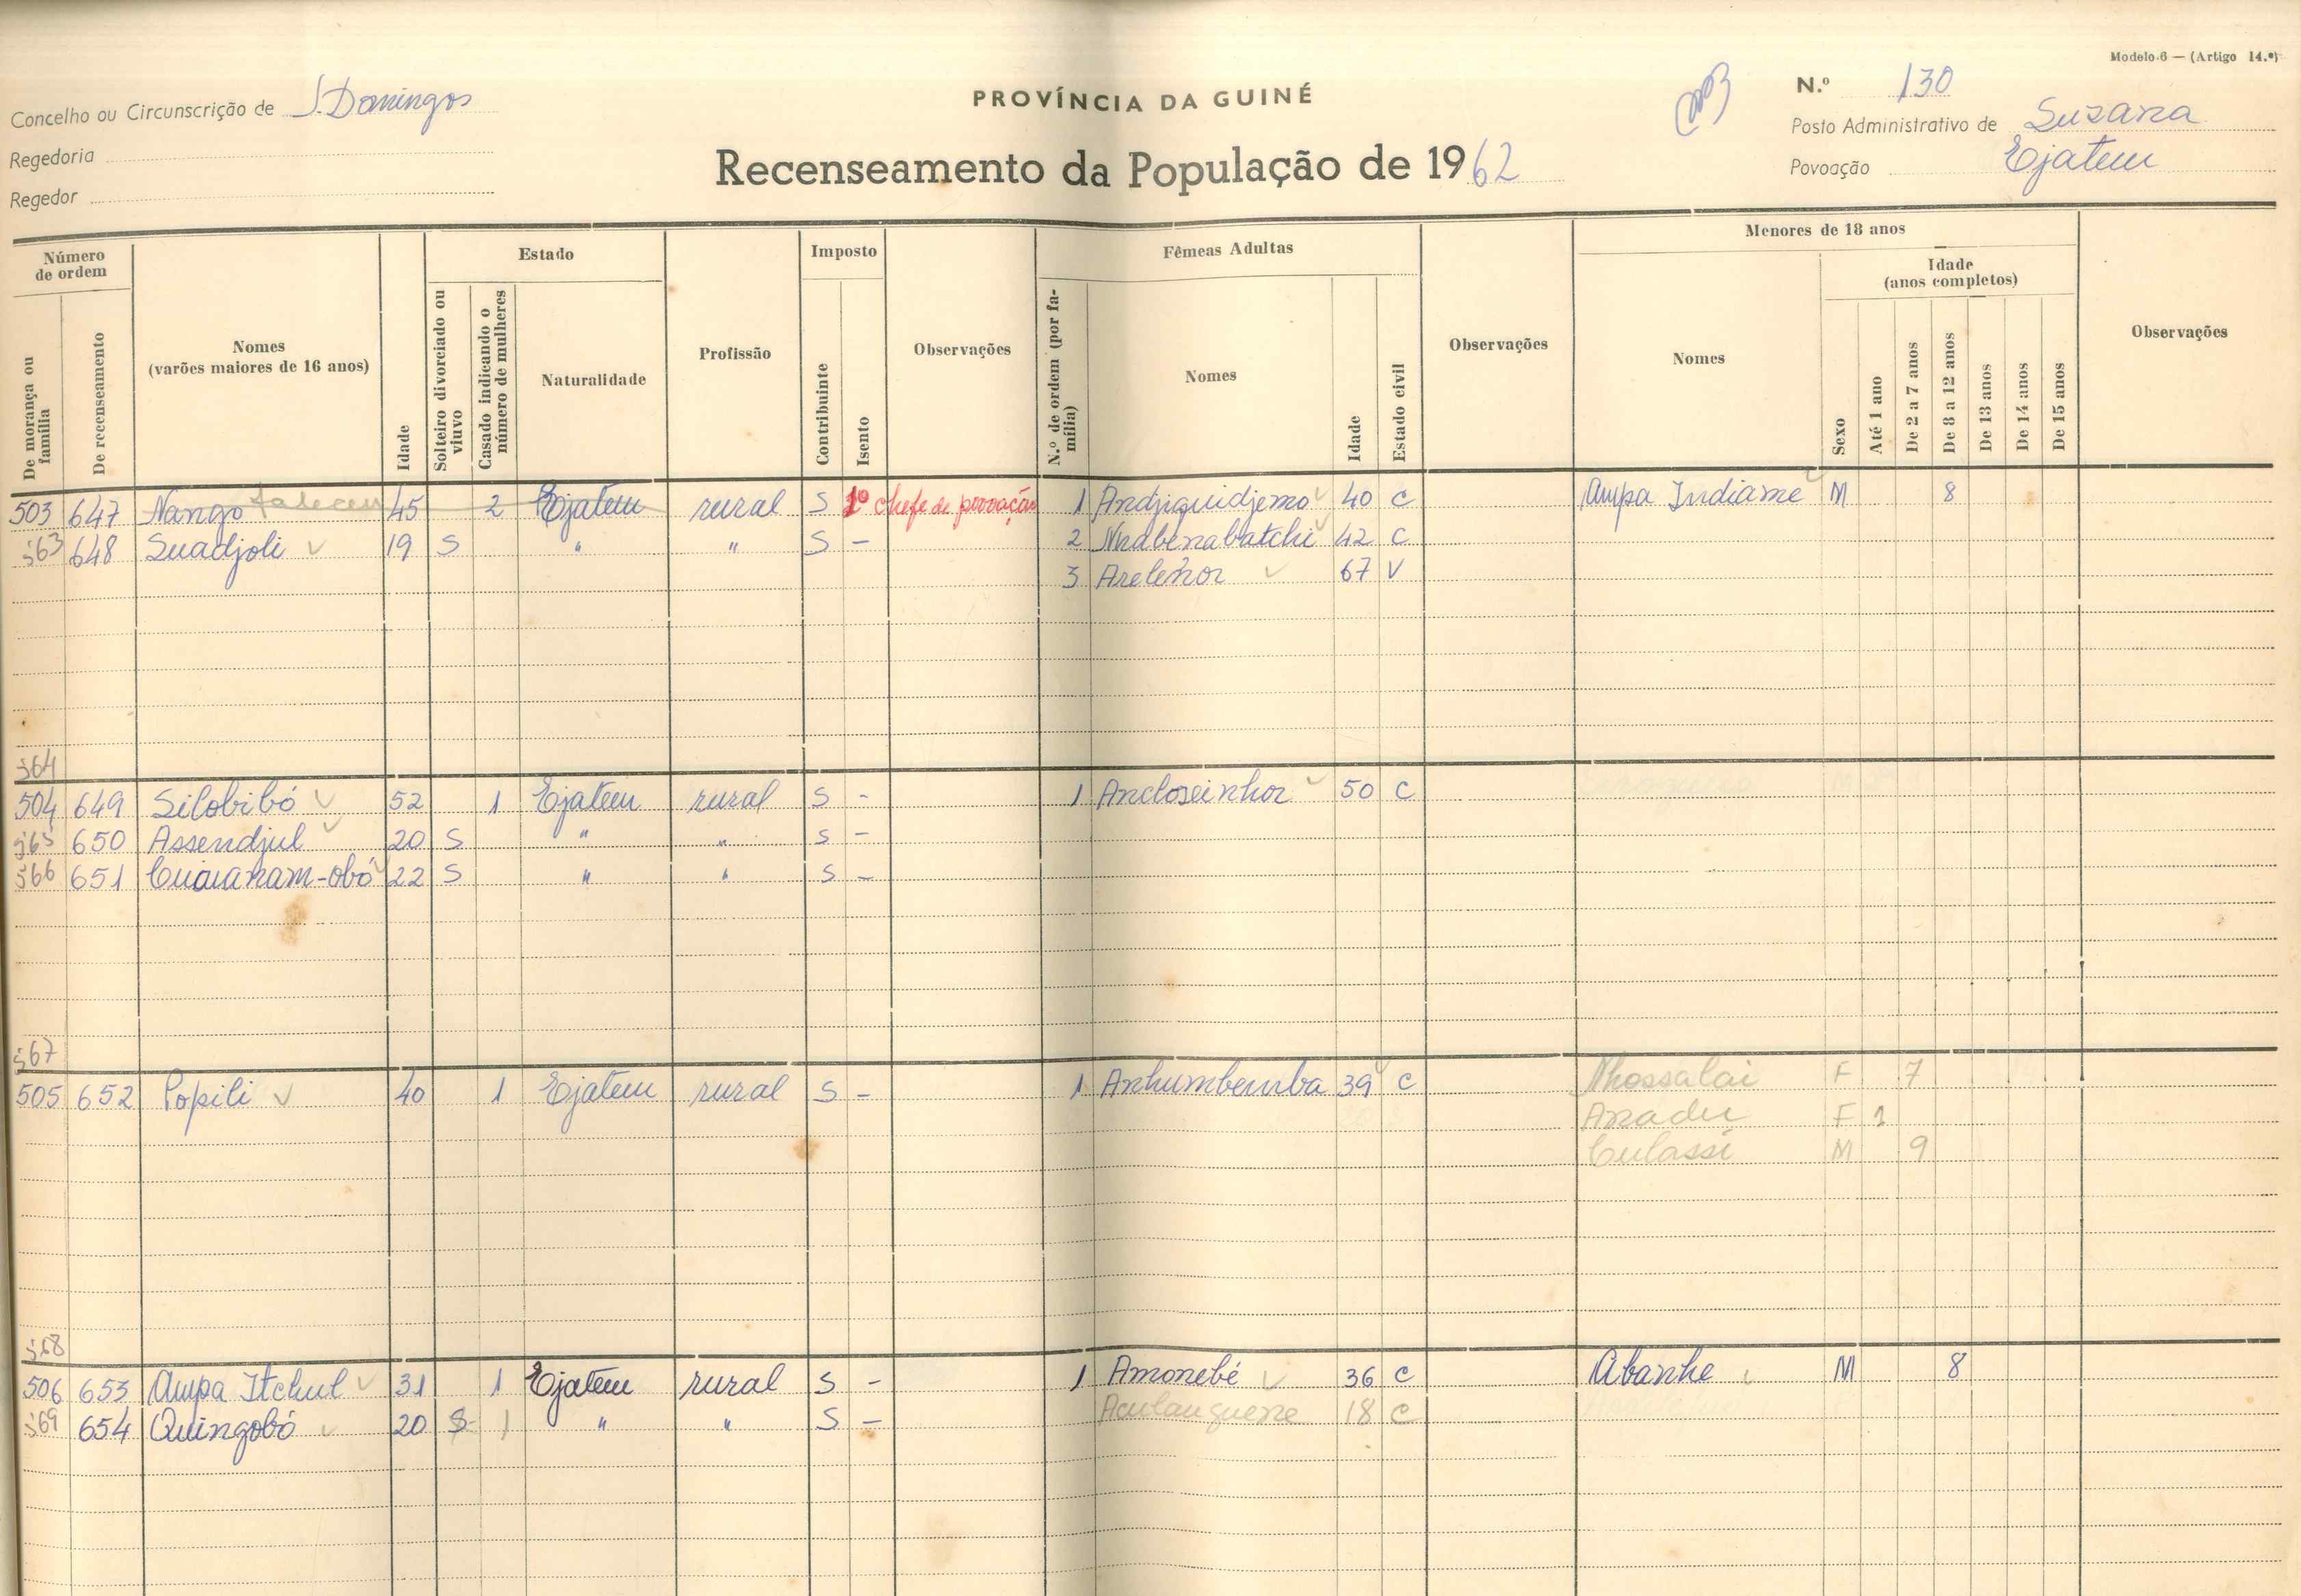 Modelo 6 — (Artigo 14.º)
Concelho ou Circunscrição de S. Domingos
PROVÍNCIA DA GUINÉ
N.º 130
Regedoria
Posto Administrativo de Suzana
Regedor
Recenseamento da População de 1962
Povoação Ejatem
Número de ordem
Estado
Imposto
Fêmeas Adultas
Menores de 18 anos
Idade (anos completos)
De morança ou família
De recenseamento
Nomes (varões maiores de 16 anos)
Idade
Solteiro divorciado ou viuvo
Casado indicando o número de mulheres
Naturalidade
Profissão
Contribuinte
Isento
Observações
N.º de ordem (por família)
Nomes
Idade
Estado civil
Observações
Nomes
Sexo
Até 1 ano
De 2 a 7 anos
De 8 a 12 anos
De 13 anos
De 14 anos
De 15 anos
Observações
503 647 Nango faleceu 45 2 Ejatem rural S 1º chefe de povoação 1 Andjiguidjemo 40 C Ampa Indiame M 8
563 648 Suadjoli 19 S " " S - 2 Nhabenabatchi 42 C
3 Arelenhor 67 V
564
504 649 Silobibó 52 1 Ejatem rural S - 1 Ancloseinhor 50 C
565 650 Assendjul 20 S " " S -
566 651 22 S " " S -
567
505 652 Popili 40 1 Ejatem rural S - 1 Anhumbemba 39 C Nhossalai F 7
Anadu F 1
Culassi M 9
568
506 653 Ampa Itchul 31 1 Ejatem rural S - 1 Amonebé 36 C Abanhe M 8
569 654 Quingobó 20 S 1 " " S - Aculanguene 18 C